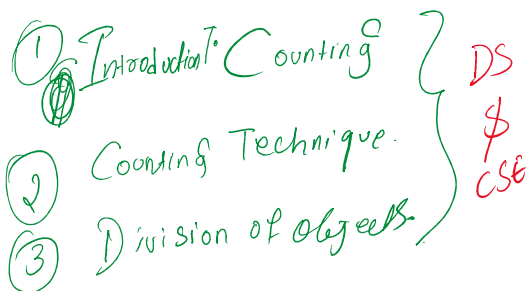 ① Introduction To Counting
② Counting Technique.
③ Division of objects.
DS
&
CSE